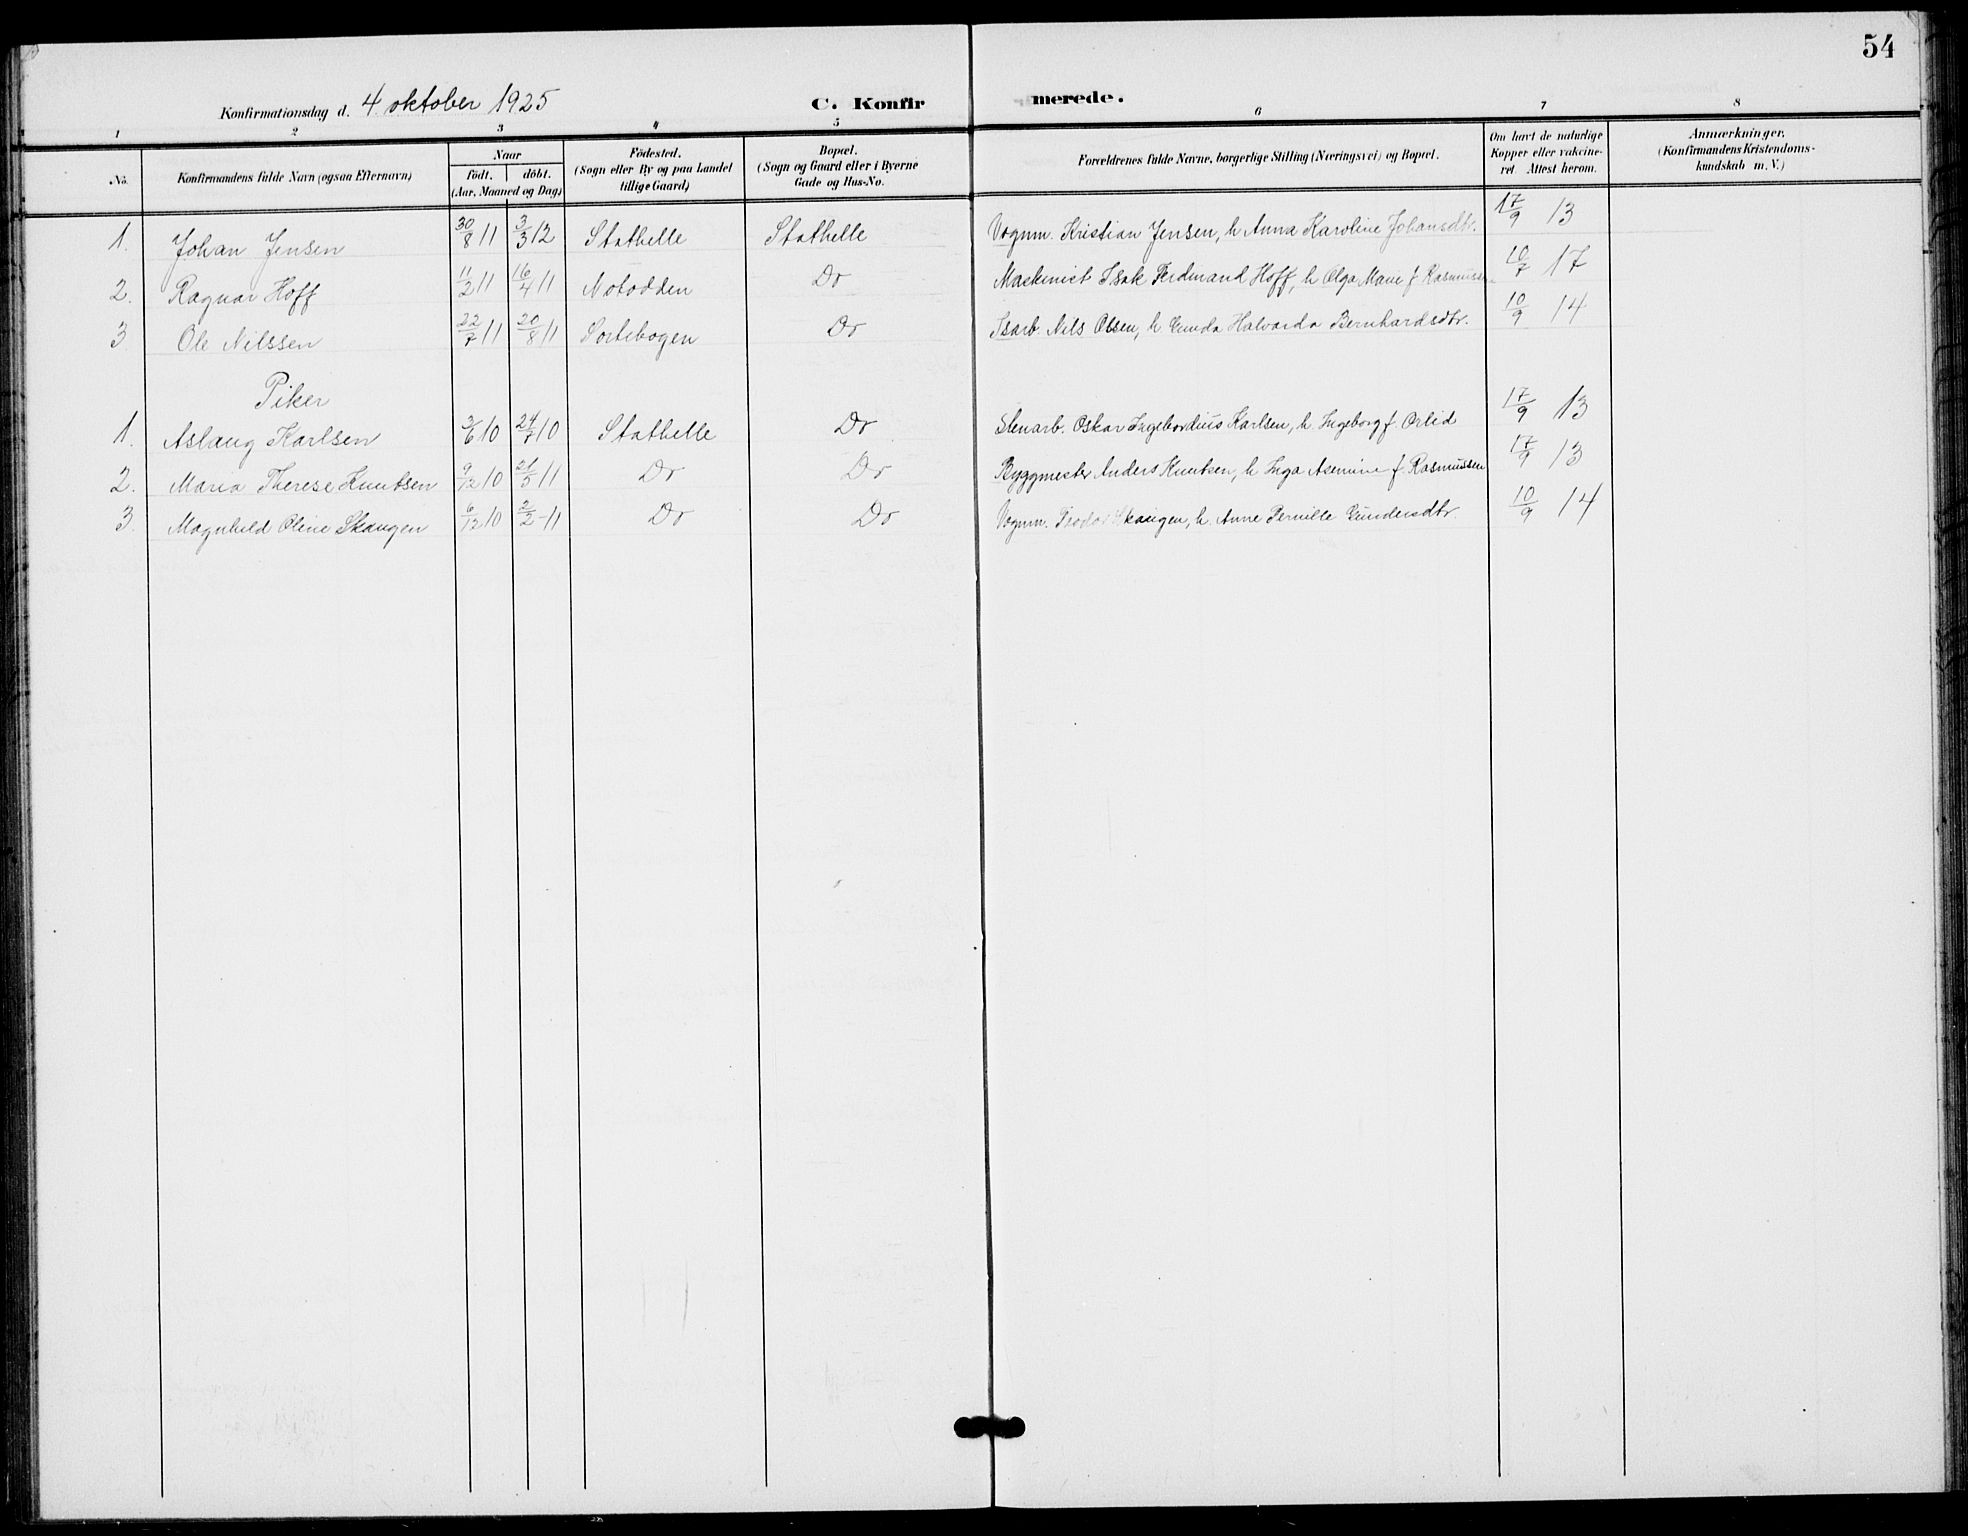 54
Konfirmationsdag d. 4 oktober 1925 C. Konfir merede.
1 2 3 4 5 6 7 8
No. Konfirmandens fulde Navn (ogsaa Efternavn) Naar født. døbt. (Aar, Maaned og Dag) Fødested. (Sogn eller By og paa Landet tillige Gaard) Bopæl. (Sogn og Gaard eller i Byerne Gade og Hus-No. Forældrenes fulde Navne, borgerlige Stilling (Næringsvei) og Bopæl. Om havt de naturlige Kopper eller vakcineret. Attest herom. Anmærkninger. (Konfirmandens Kristendomskundskab m. V.)
1. Johan Jensen 30/8 11 3/3 12 Stathelle Stathelle Vognm. Kristian Jensen, h Anna Karoline Johansdtr. 17/9 13
2. Ragnar Hoff 11/2 11 16/4 11 Notodden Do Maskinist Isak Ferdinand Hoff, h Olga Marie f Rasmussen 10/7 17
3 Ole Nilssen 22/7 11 20/8 11 Sortebogen Do Isarb. Nils Olsen, h Gunda Halvarda Bernhardsdtr. 10/9 14
Piker
1. Aslaug Karlsen 3/6 10 24/7 10 Stathelle Do Stenarb. Oskar Ingebordius Karlsen, h. Ingeborg f. Orlid 17/9 13
2. Maria Therese Knutsen 9/12 10 21/5 11 Do Do Byggmester Anders Knutsen, h Inga Asemine f. Rasmussen 17/9 13
3. Magnhild Oline Skaugen 6/12 10 2/2 - 11 Do Do Vognm. Teodor Skaugen, h. Anne Pernille Gundersdtr 10/9 14